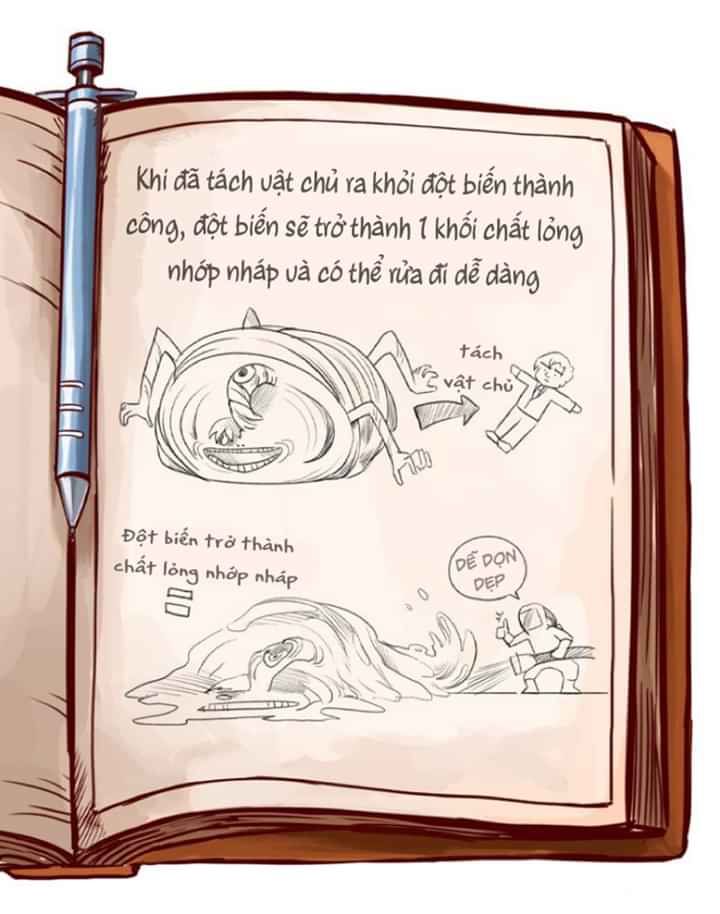 Khi đã tách vật chủ ra khỏi đột biến thành
công, đột biến sẽ trở thành 1 khối chất lỏng
nhớp nháp và có thể rửa đi dễ dàng
tách
vật chủ
Đột biến trở thành
chất lỏng nhớp nháp
DỄ DỌN
DẸP